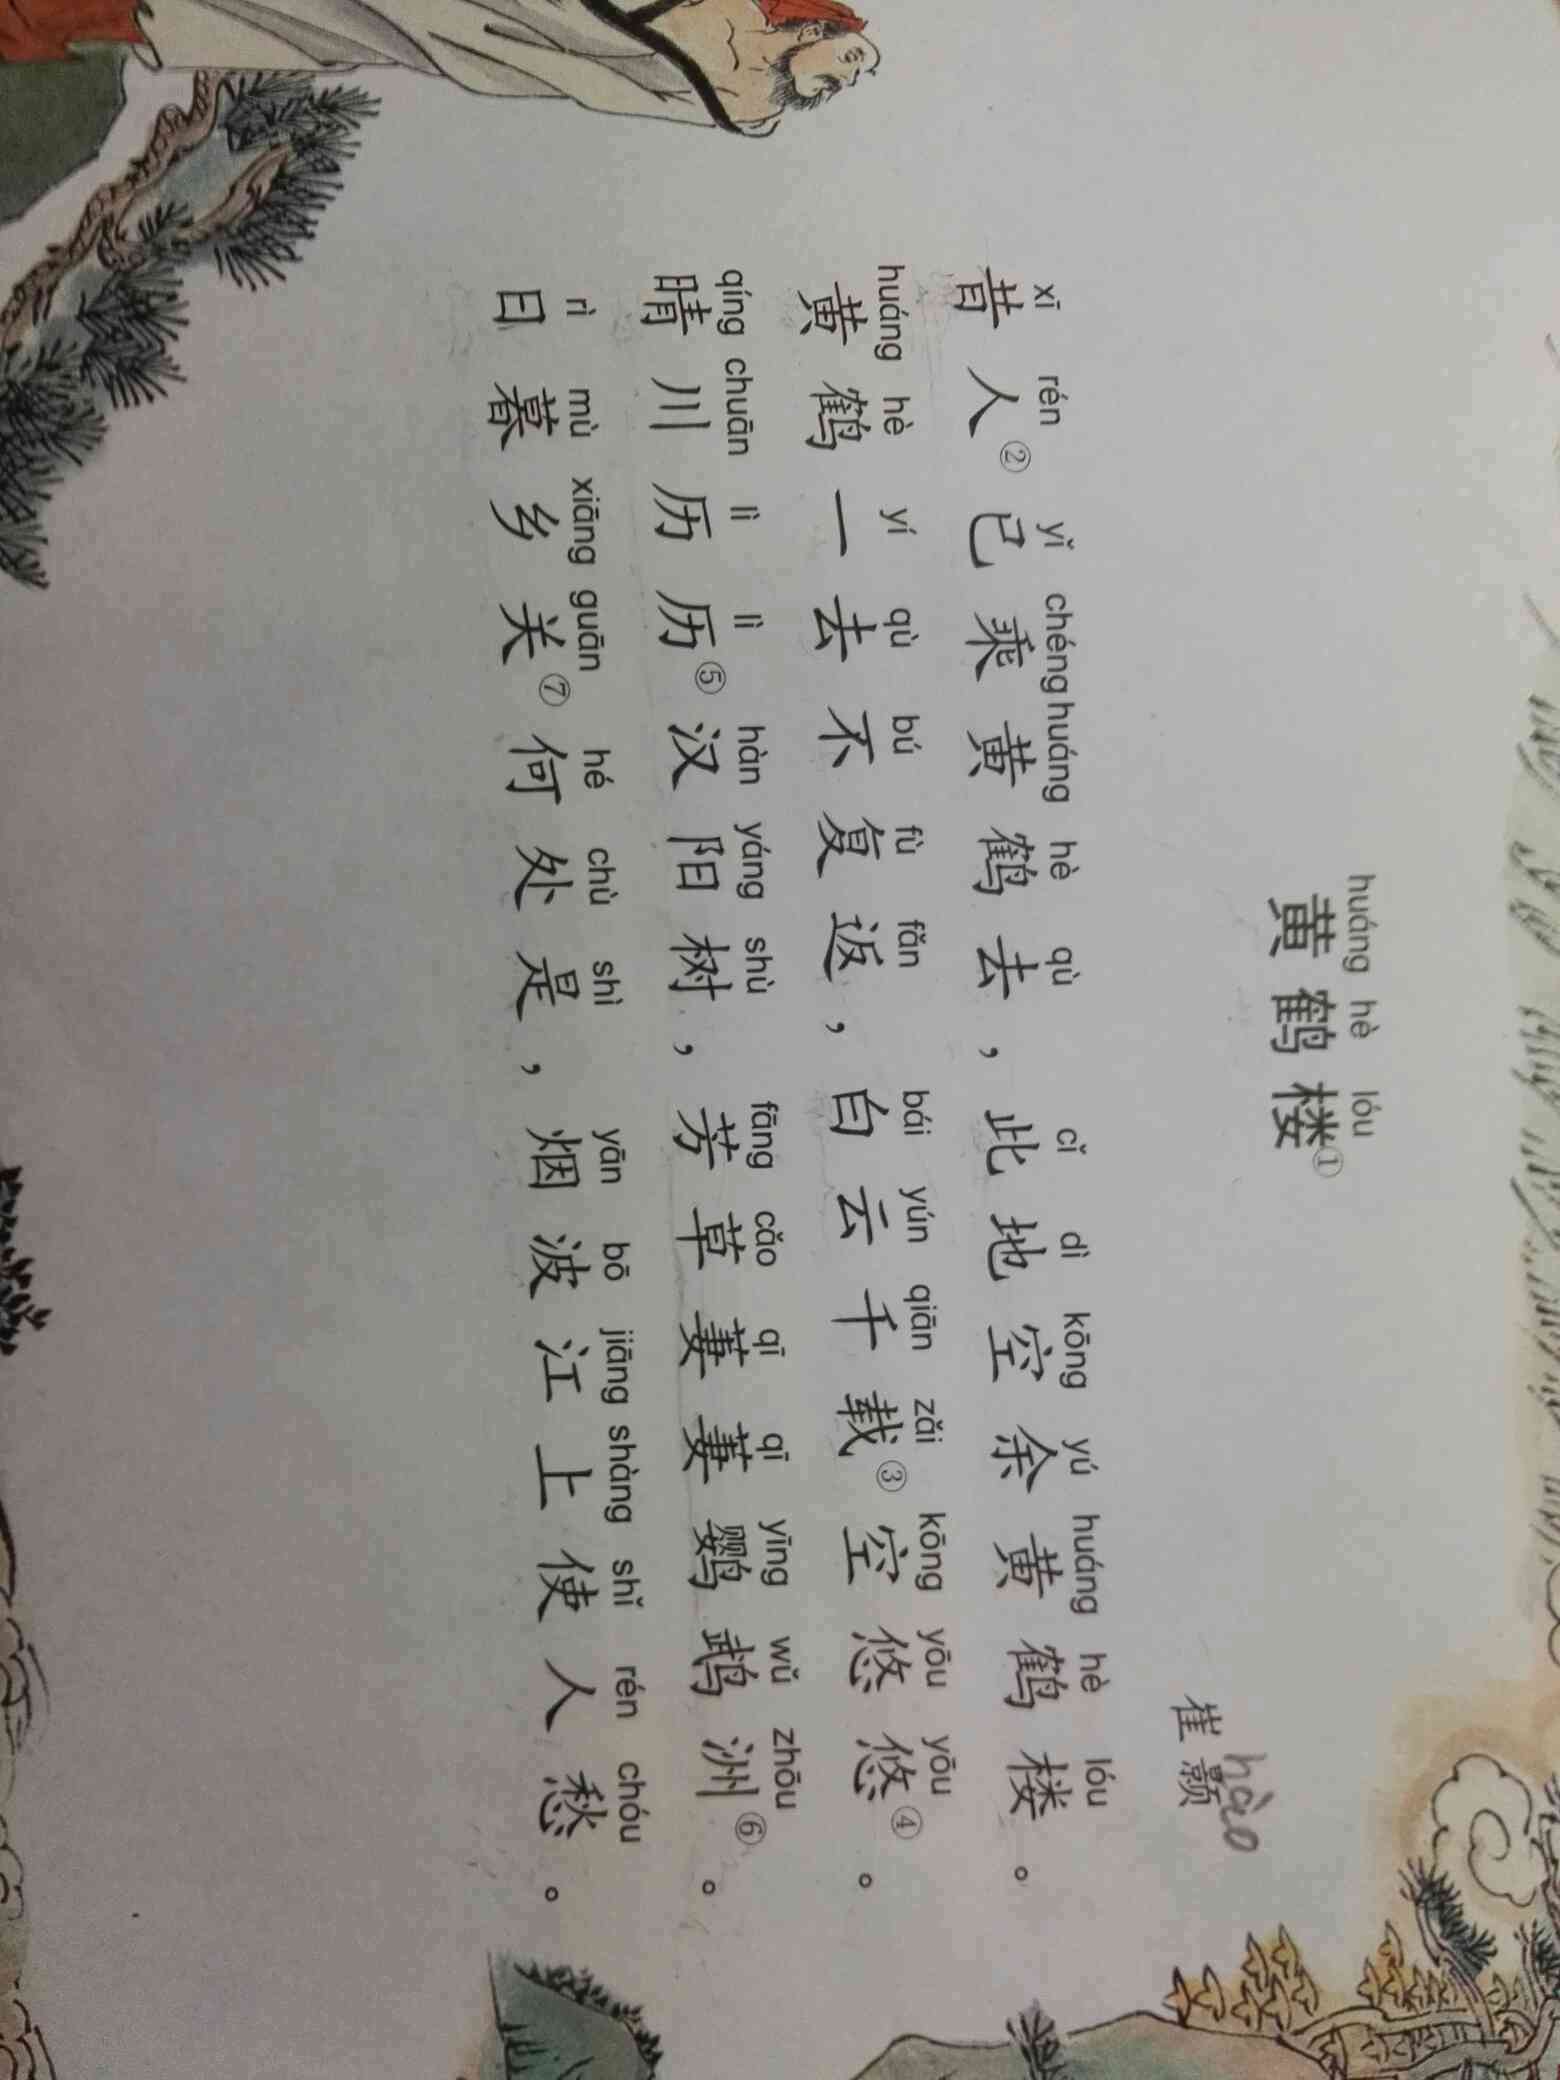 huáng hè lóu
黄鹤楼①
崔颢 hào
xī rén yǐ chéng huáng hè qù cǐ dì kōng yú huáng hè lóu
昔人②已乘黄鹤去，此地空余黄鹤楼。
huáng hè yí qù bú fù fǎn bái yún qiān zǎi kōng yōu yōu
黄鹤一去不复返，白云千载③空悠悠④。
qíng chuān lì lì hàn yáng shù fāng cǎo qī qī yīng wǔ zhōu
晴川历历⑤汉阳树，芳草萋萋鹦鹉洲⑥。
rì mù xiāng guān hé chù shì yān bō jiāng shàng shǐ rén chóu
日暮乡关⑦何处是，烟波江上使人愁。